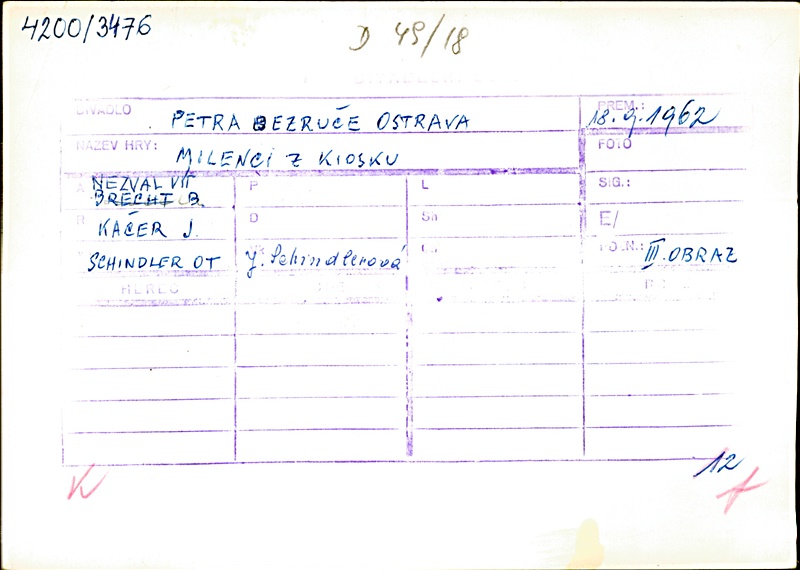 4200/3476
D 49/18
DIVADLO PETRA BEZRUČE OSTRAVA
PREM.: 18.9.1962
NÁZEV HRY: MILENCI Z KIOSKU
FOTO
A NEZVAL VÍT
BRECHT B.
P
L
SIG.:
R KAČER J.
D
Sh
E/
SCHINDLER OT
J. Schindlerová
POZN.: III. OBRAZ
HEREC
12
K
A